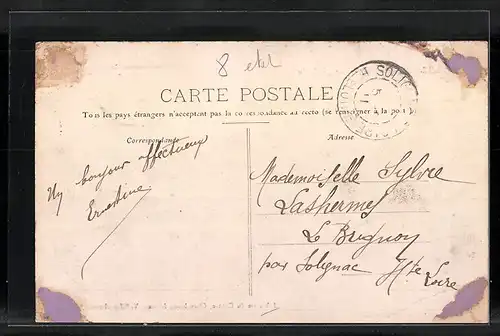 8 etel
CARTE POSTALE
Tous les pays étrangers n'acceptent pas la correspondance au recto (se renseigner à la poste)
Correspondance
Adresse
Un bonjour affectueux
Ernestine
Mademoiselle Sylvie
Lashermes
Le Brignon
par Solignac Hte Loire